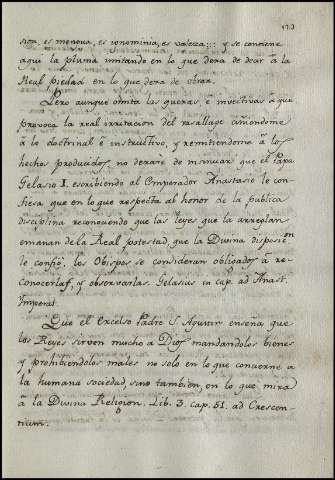 sion, es mengua, es ignominia, es vaieza::: y se contiene
aqui la pluma imitando en lo que dexa de decir â la
Real piedad en lo que dexa de obrar.
Pero aunque omita las quexas e invectivas â que
provoca la real irritacion del vasallage ciñendome
â lo doctrinal è instructivo, y remitiendome â los
hechos producidos no dexarè de insinuar que el Papa
Gelasio I. escribiendo al Emperador Anastasio le con
fiesa que en lo que respecta al honor de la publica
disciplina reconociendo que las leyes que la arreglan
emanan de la Real potestad, que la Divina disposicion
le confiò, los Obispos se consideran obligados â re-
conocerlas, y observarlas. Gelasius in cap. ad Anast.
Imperat.
Que el excelso Padre S. Agustin enseña que
los Reyes sirven mucho a Dios mandandolos bienes
y prohibiendolos males no solo en lo que concierne a
la humana sociedad, sino tambien, en lo que mira
â la Divina Religion. Lib. 3. cap. 51. ad Crescon-
nium.